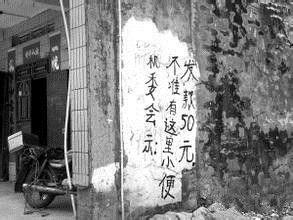 发款50元
不准有这里小便
机委会示